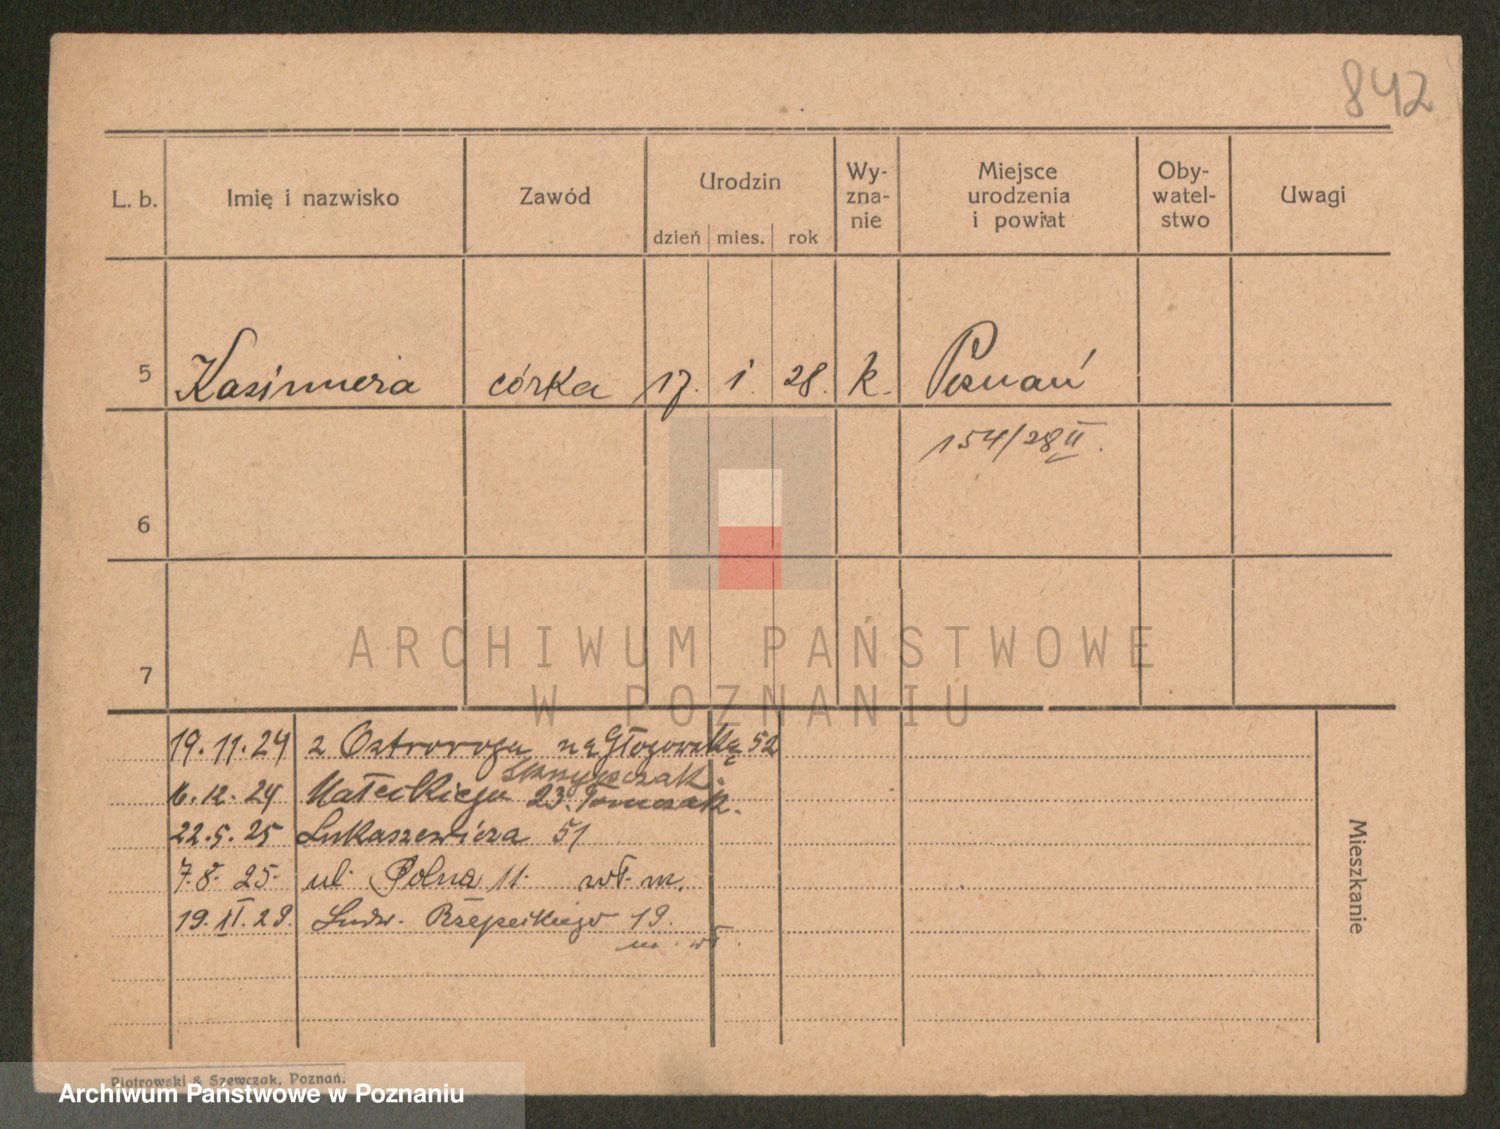 842
L. b. Imię i nazwisko Zawód Urodzin Wy-zna-nie Miejsce urodzenia i powiat Oby-watel-stwo Uwagi
dzień mies. rok
5 Kazimiera córka 17. 1. 28. k. Poznań
154/28 II.
6
7
ARCHIWUM PAŃSTWOWE
W POZNANIU
19.11.24 z Ostroroga na Głogowską 52
Skrzypczak.
16.12.24 Małeckiego 23. Tomczak.
22.5.25 Łukaszewicza 51
7.8.25. ul. Polna 11. wł. m.
19.II.29. Ludw. Rzepeckiego 19.
m. wł.
Mieszkanie
Piotrowski & Szewczak, Poznań.
Archiwum Państwowe w Poznaniu